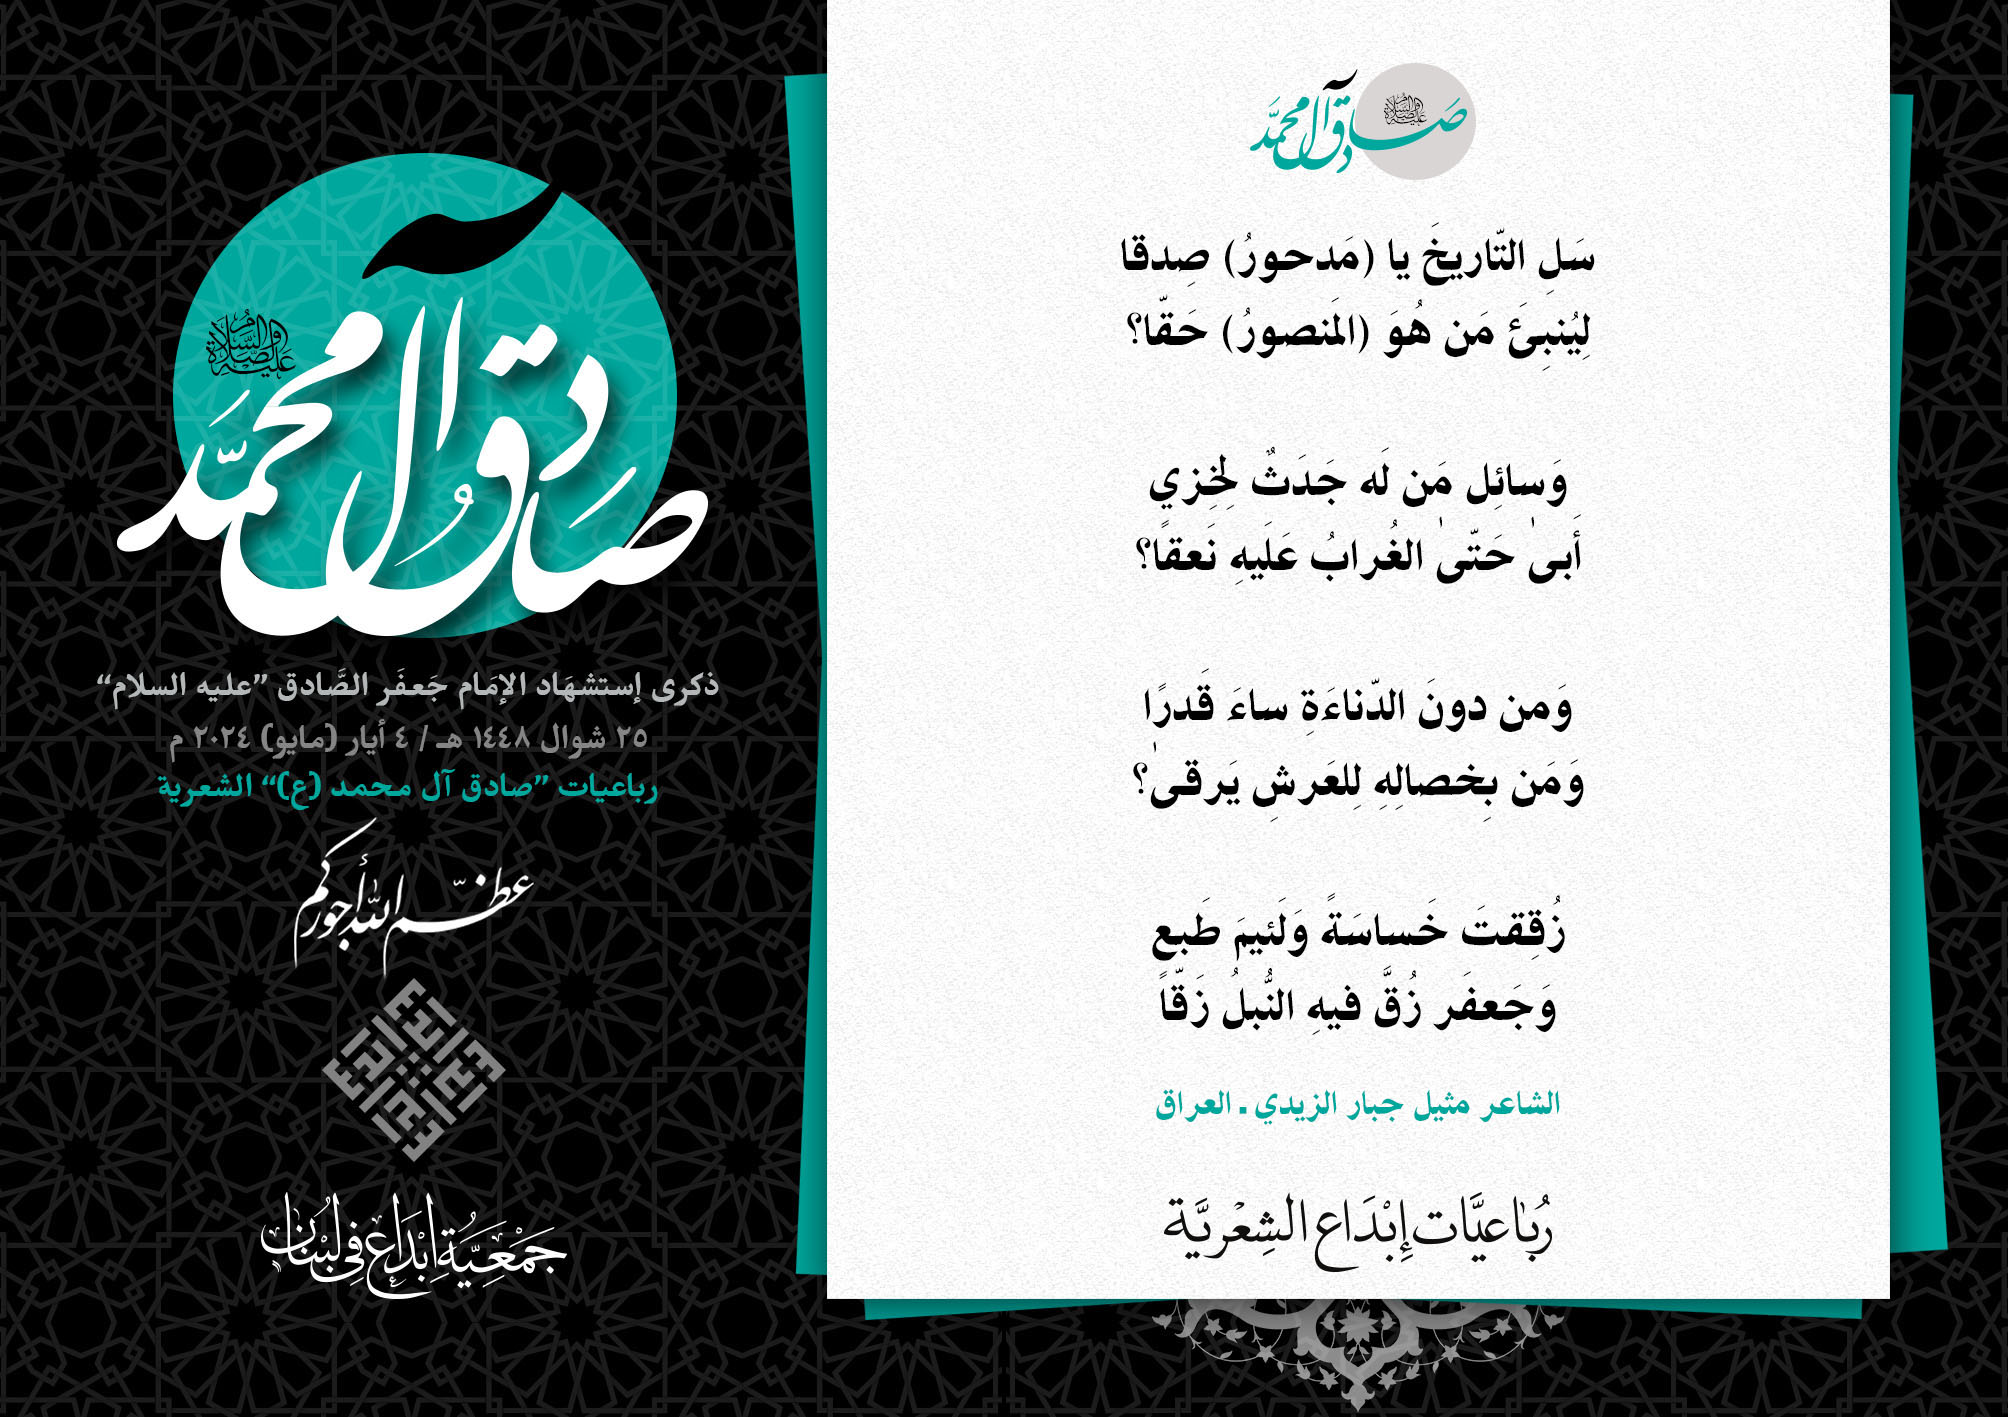 صادق آل محمد
عليه الصلاة والسلام
ذكرى إستشهَاد الإمَام جَعفَر الصَّادق ”عليه السلام“
٢٥ شوال ١٤٤٨ هـ / ٤ أيار (مايو) ٢٠٢٤ م
رباعيات ”صادق آل محمد (ع)“ الشعرية
عظّم الله أجوركم
جَمْعِيَّةُ إِبْدَاعْ فِي لُبْنَان
صادق آل محمد
عليه الصلاة والسلام
سَلِ التّاريخَ يا (مَدحورُ) صِدقا
لِيُنبِئَ مَن هُوَ (المَنصورُ) حَقّا؟
وَسائِل مَن لَه جَدَثٌ لِخِزي
أَبىٰ حَتّىٰ الغُرابُ عَلَيهِ نَعقًا؟
وَمن دونَ الدّناءَةِ ساءَ قَدرًا
وَمَن بِخصالِهِ لِلعَرشِ يَرقىٰ؟
زُقِقتَ خَساسَةً وَلَئيمَ طَبعٍ
وَجَعفَر زُقَّ فيهِ النُّبلُ زَقّاً
الشاعر مثيل جبار الزيدي ـ العراق
رُبَاعيَّات إِبْدَاع الشِعْريَّة